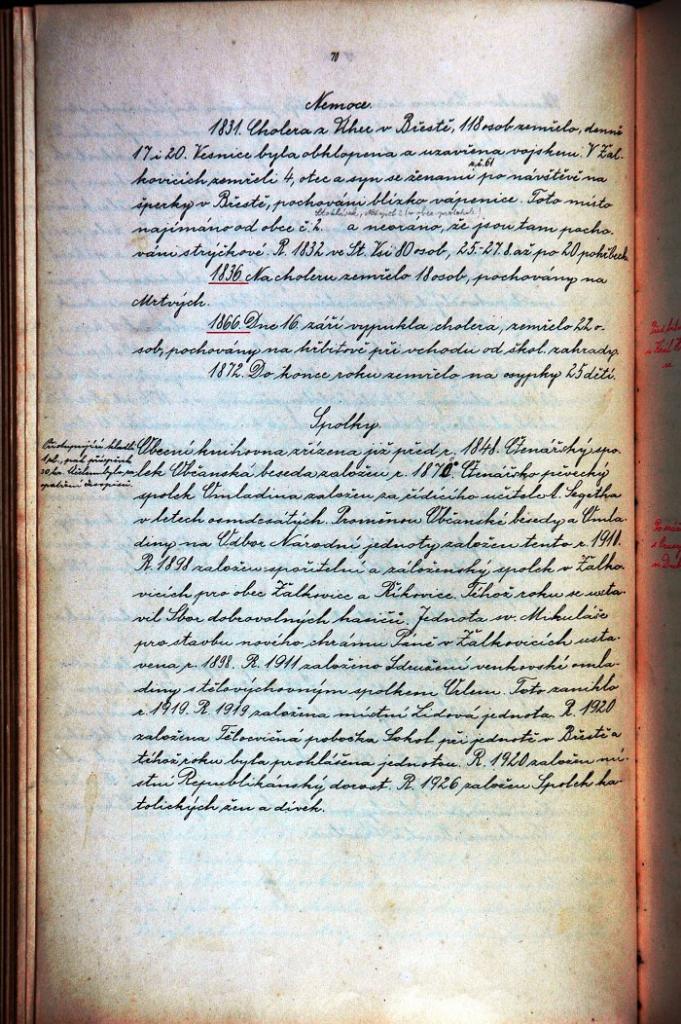 70
Nemoce.
1831. Cholera z Uher v Břestě, 118 osob zemřelo, denně
17 i 20. Vesnice byla obklopena a uzavřena vojskem. V Žal-
kovicích zemřeli 4, otec a syn se ženami po návštěvě na
z č. 61
šperky v Břestě, pochováni blízko vápenice. Toto místo
najímáno od obce č. 2. a neoráno, že jsou tam pocho-
váni strýčkové. R. 1832 ve St. Vsi 80 osob, 25.-27.8. až po 20 pohřbech
1836. Na choleru zemřelo 18 osob, pochovány na
Mrtvých.
1866. Dne 16. září vypukla cholera, zemřelo 22 o-
sob, pochovány na hřbitově při vchodu od škol. zahrady.
1872. Do konce roku zemřelo na osypky 25 dětí.
Spolky.
Obecní knihovna zřízena již před r. 1848. Čtenářský spo-
lek Občanská beseda založen r. 1876. Čtenářsko pěvecký
spolek Omladina založen za řídícího učitele t. Segetha
v letech osmdesátých. Proměnou Občanské besedy a Omla-
diny na Odbor Národní jednoty založen tento r. 1911.
R. 1898 založen spořitelní a záloženský spolek v Žalko-
vicích pro obec Žalkovice a Říkovice. Téhož roku se usta-
vil Sbor dobrovolných hasičů. Jednota sv. Mikuláše
pro stavbu nového chrámu Páně v Žalkovicích usta-
vena r. 1898. R. 1911 založeno Sdružení venkovské omla-
diny s tělovýchovným spolkem Orlem. Toto zaniklo
r. 1919. R. 1919 založena místní Lidová jednota. R. 1920
založena Tělocvičná pobočka Sokol při jednotě v Břestě a
téhož roku byla prohlášena jednotou. R. 1920 založen mí-
stní Republikánský dorost. R. 1926 založen Spolek ka-
tolických žen a dívek.